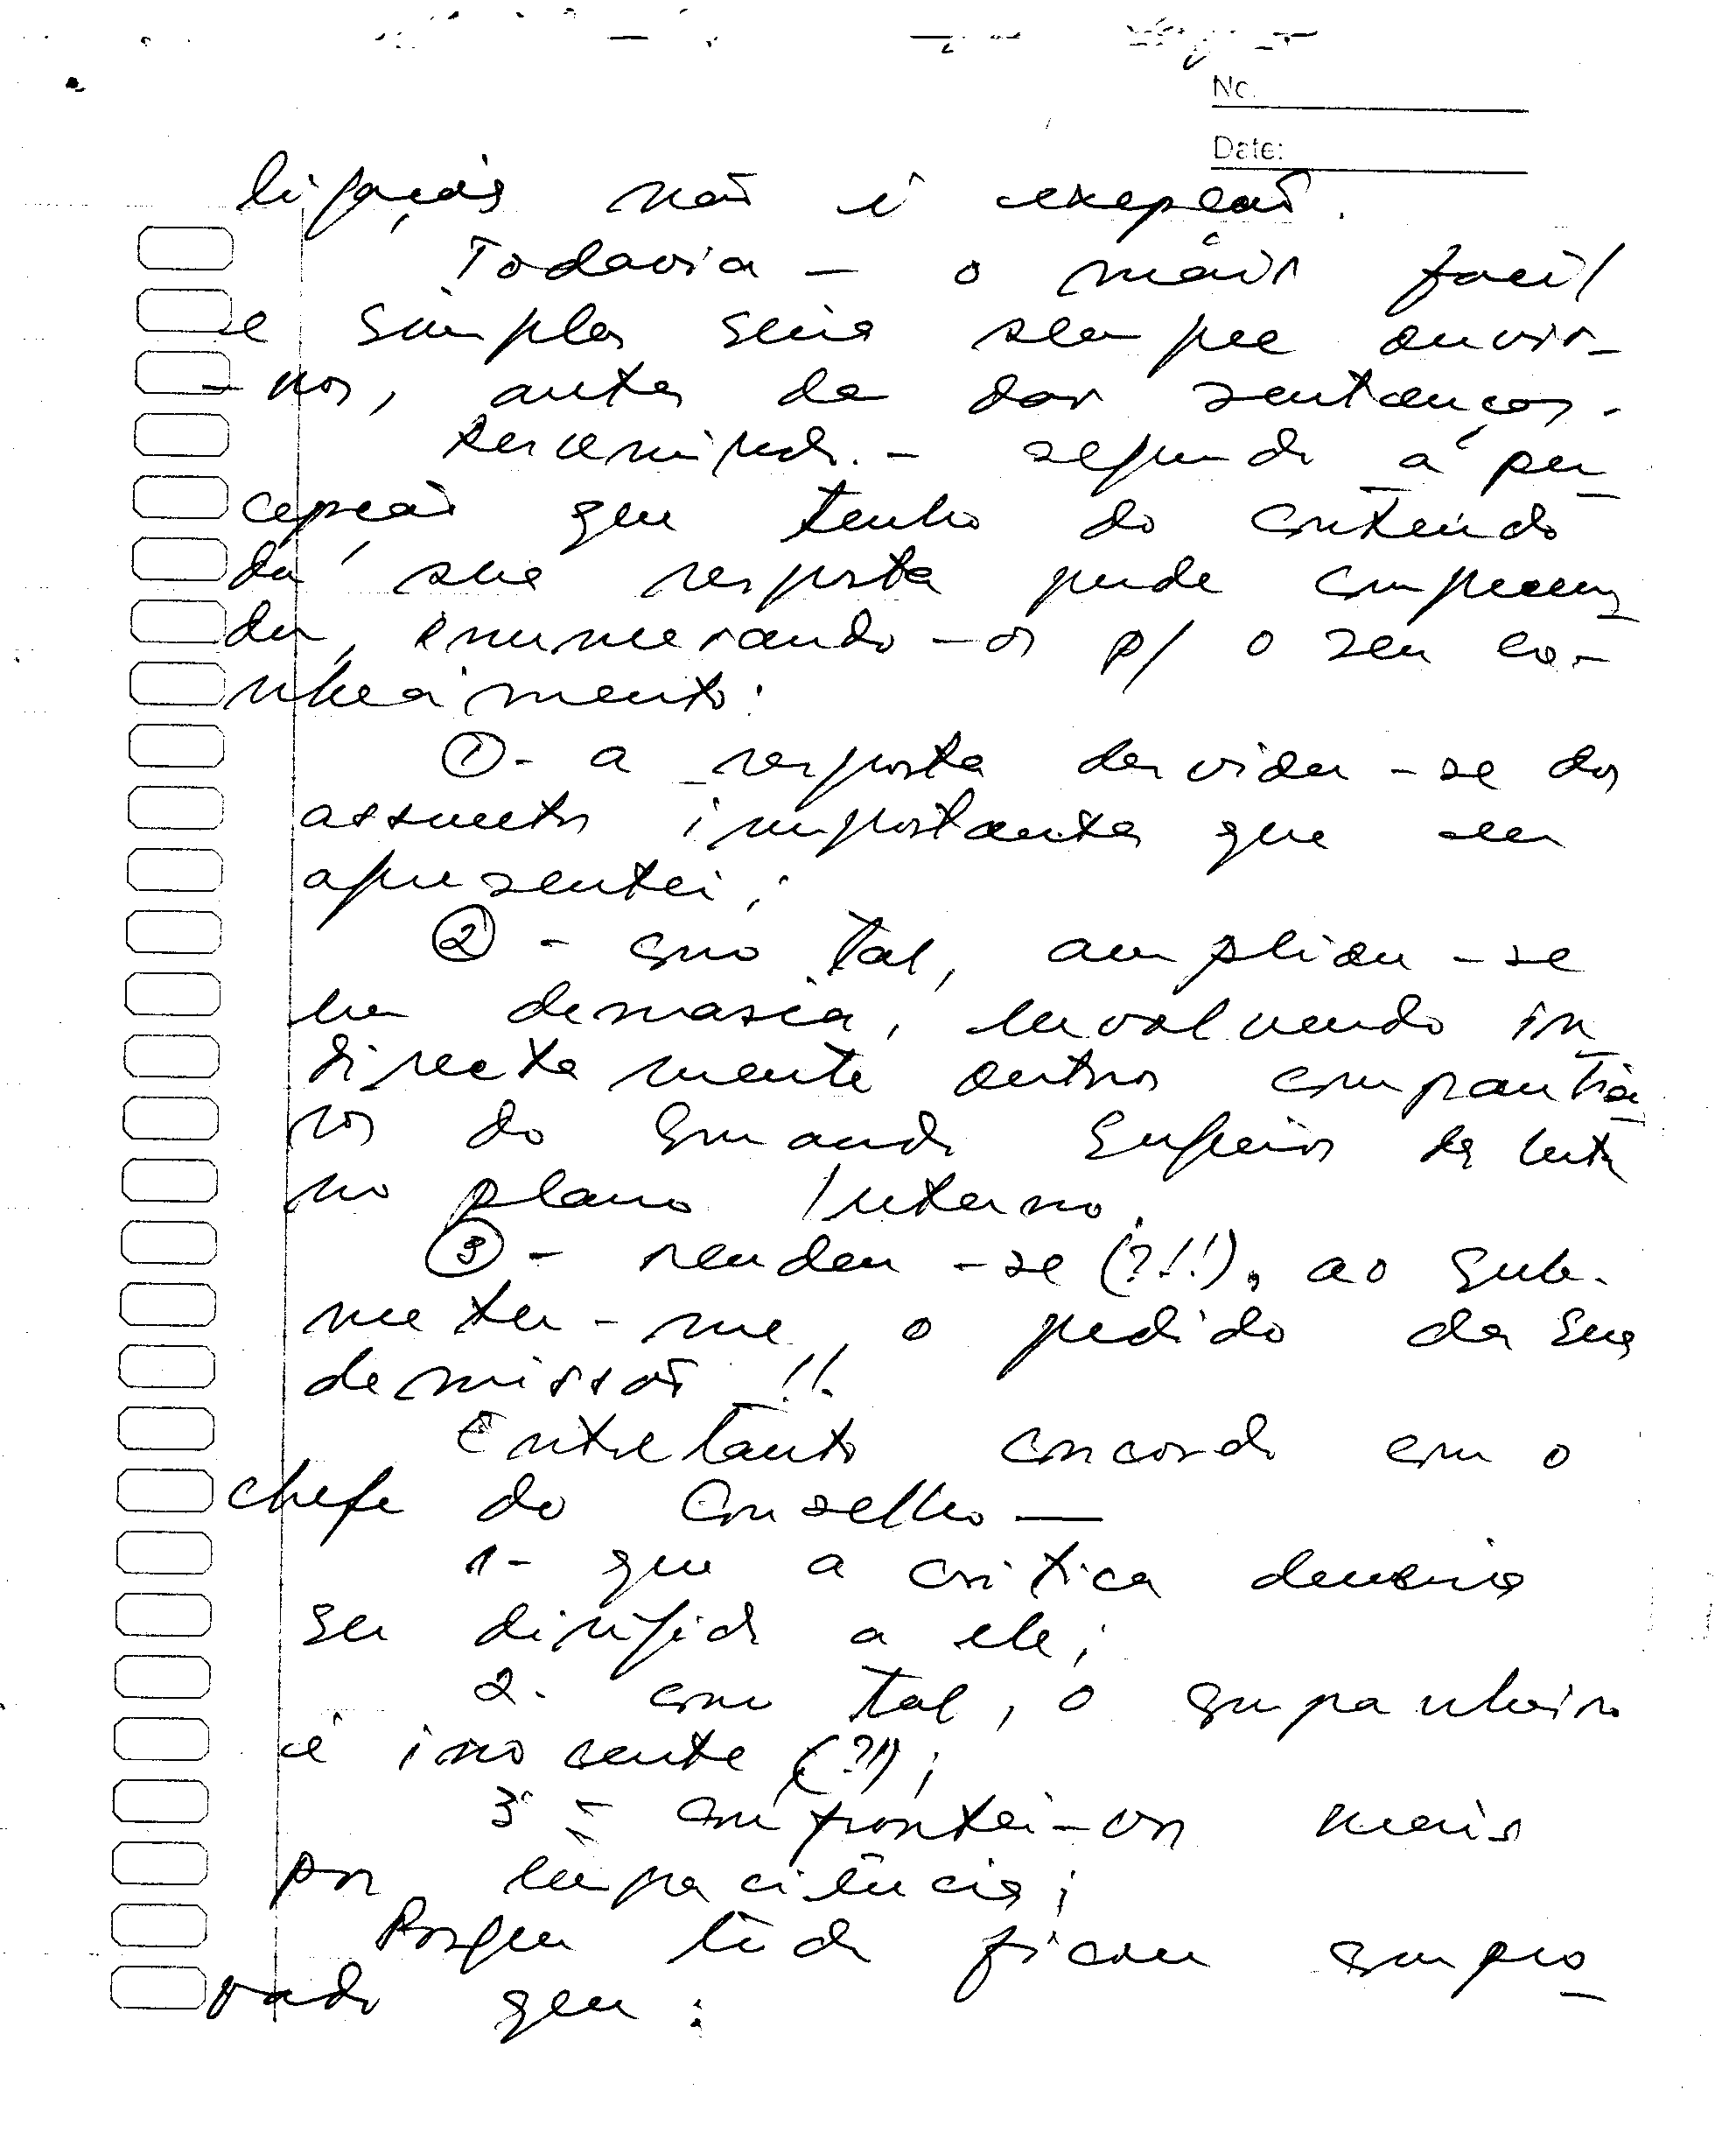 No.
Date:
ligações não é exepção.
Todavia – o mais facil
e simples seria sempre ouvir-
-nos, antes de dar sentenças.
segundo a per_
cepção que tenho do conteúdo
da sua resposta pude compreen_
der, enumerando-os p/ o seu co-
nhecimento:
① - a resposta desviou-se dos
assuntos importantes que eu
apresentei;
② - como tal, ampliou-se
em demasia, envolvendo in_
directamente outros companhei_
ros do Comando Superior da luta
no plano Interno.
③ - rendeu-se (?!!), ao sub-
meter-me, o pedido da sua
demissão !!.
Entretanto concordo com o
chefe do Conselho —
1- que a critica deveria
ser dirigida a ele;
2- como tal, o companheiro
é inocente (?!);
3º - confrontei-os mais
por impaciência;
Porque tudo ficou compro_
vado que: